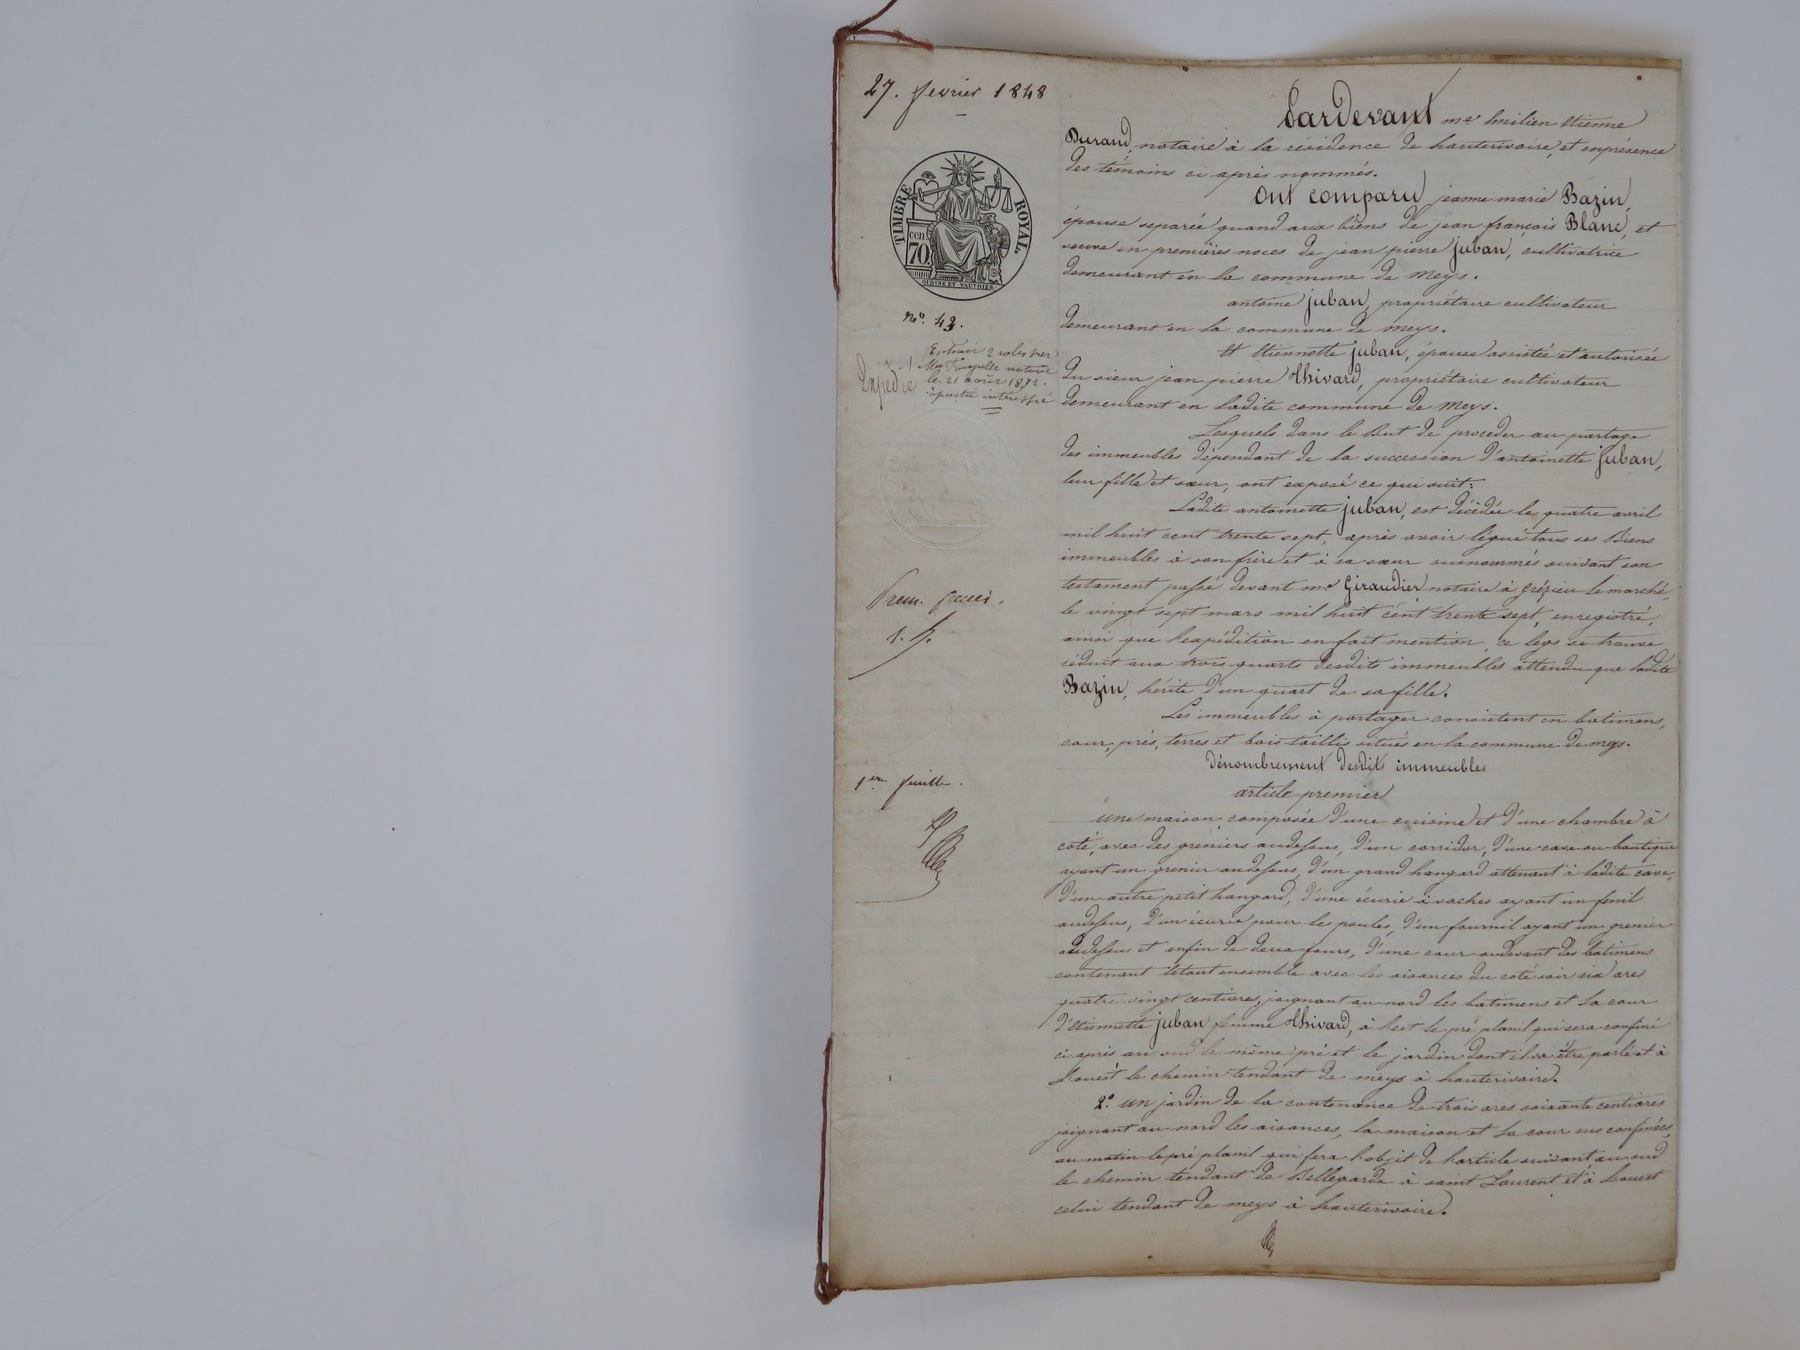 27. fevrier 1848
TIMBRE ROYAL.
cen.
70.
OUDINE ET VAUTHIER
no. 43.
Extrait 2 roles par
Me notaire
le 21 août 1872.
partie intéressée
Expédié
1. f.
1ere feuille.
Pardevant me Emilien Etienne
Durand, notaire à la résidence de hauterivoire, et enprésence
des témoins ci après nommés.
Ont comparu jeanne marie Bazin,
épouse separée quand aux biens de jean françois Blanc, et
veuve en premières noces de jean pierre juban, cultivatrice
demeurant en la commune de meys.
antoine juban, propriétaire cultivateur
demeurant en la commune de meys.
Et Etiennette juban, épouse assistée et autorisée
du sieur jean pierre Thivard, propriétaire cultivateur
demeurant en ladite commune de meys.
Lesquels dans le But de proceder au partage
des immeubles dépendant de la succession d'antoinette juban,
leur fille et sœur, ont exposé ce qui suit:
Ladite antoinette juban, est décédée le quatre avril
mil huit cent trente sept, après avoir légué tous ses Biens
immeubles à son frère et à sa sœur susnommés suivant son
testament passé devant me Giraudier notaire à grézieu le marché,
le vingt sept mars mil huit cent trente sept, enregistré,
ainsi que l'expédition en fait mention, ce legs se trouve
réduit aux trois quarts desdits immeubles attendu que ladite
Bazin, hérite d'un quart de sa fille.
Les immeubles à partager consistent en batimens,
cour, prés, terres et bois taillis situés en la commune de meys.
dénombrement desdits immeubles
article premier
une maison composée d'une cuisine et d'une chambre à
coté, avec des greniers audessus, d'un corridor, d'une cave ou boutique
ayant un grenier audessus, d'un grand hangard attenant à ladite cave,
d'un autre petit hangard, d'une écurie à vaches ayant un fenil
audessus, d'un écurie pour les poules, d'un fournil ayant un grenier
audessus et enfin de deux fours, d'une cour audevant des batimens
contenant letout ensemble avec les aisances du coté soir six ares
quatre vingt centiares, joignant au nord les batimens et la cour
d'Etiennette juban femme Thivard, à l'est le pré planil qui sera confiné
ci après au sud le même pré et le jardin dont il va être parlé et à
l'ouest le chemin tendant de meys à hauterivoire.
2o. un jardin de la contenance de trois ares soixante centiares
joignant au nord les aisances, la maison et la cour sus confinées,
au matin le pré planil qui fera l'objet de l'article suivant au sud
le chemin tendant de Bellegarde à saint Laurent et à l'ouest
celui tendant de meys à hauterivoire.